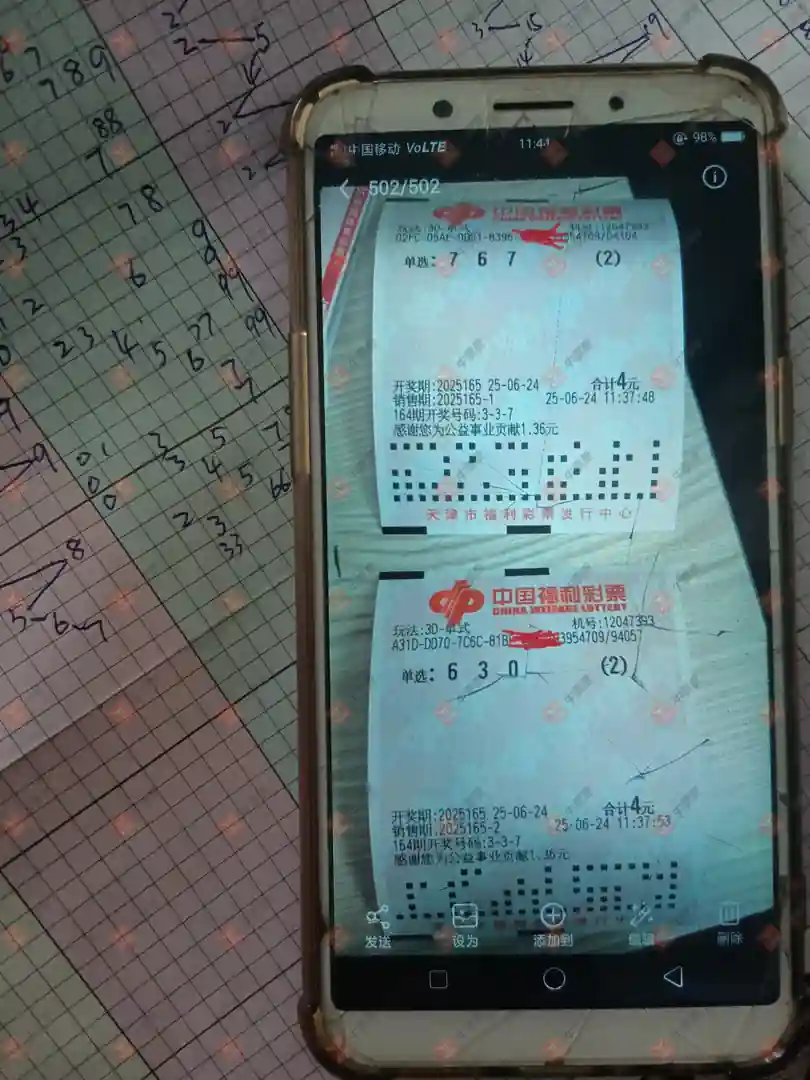 中国移动 VoLTE 11:44 98%
502/502
中国福利彩票
玩法:3D-单式 机号:12047393
单选: 7 6 7 (2)
开奖期:2025165 25-06-24 合计4元
销售期:2025165-1 25-06-24 11:37:48
164期开奖号码:3-3-7
感谢您为公益事业贡献1.36元
天津市福利彩票发行中心
中国福利彩票
CHINA WELFARE LOTTERY
玩法:3D-单式 机号:12047393
A31D-DD70-7C6C-81B 3954709/94057
单选: 6 3 0 (2)
开奖期:2025165 25-06-24 合计4元
销售期:2025165-2 25-06-24 11:37:53
164期开奖号码:3-3-7
感谢您为公益事业贡献1.36元
发送 设为 添加到 编辑 删除
67 789
2 5
3 15
88
7
34 78
6
2
23 4 5 6 77 99
01 3 5 7
0 3 4 5 66
0 2 3
33
8
5-6-7